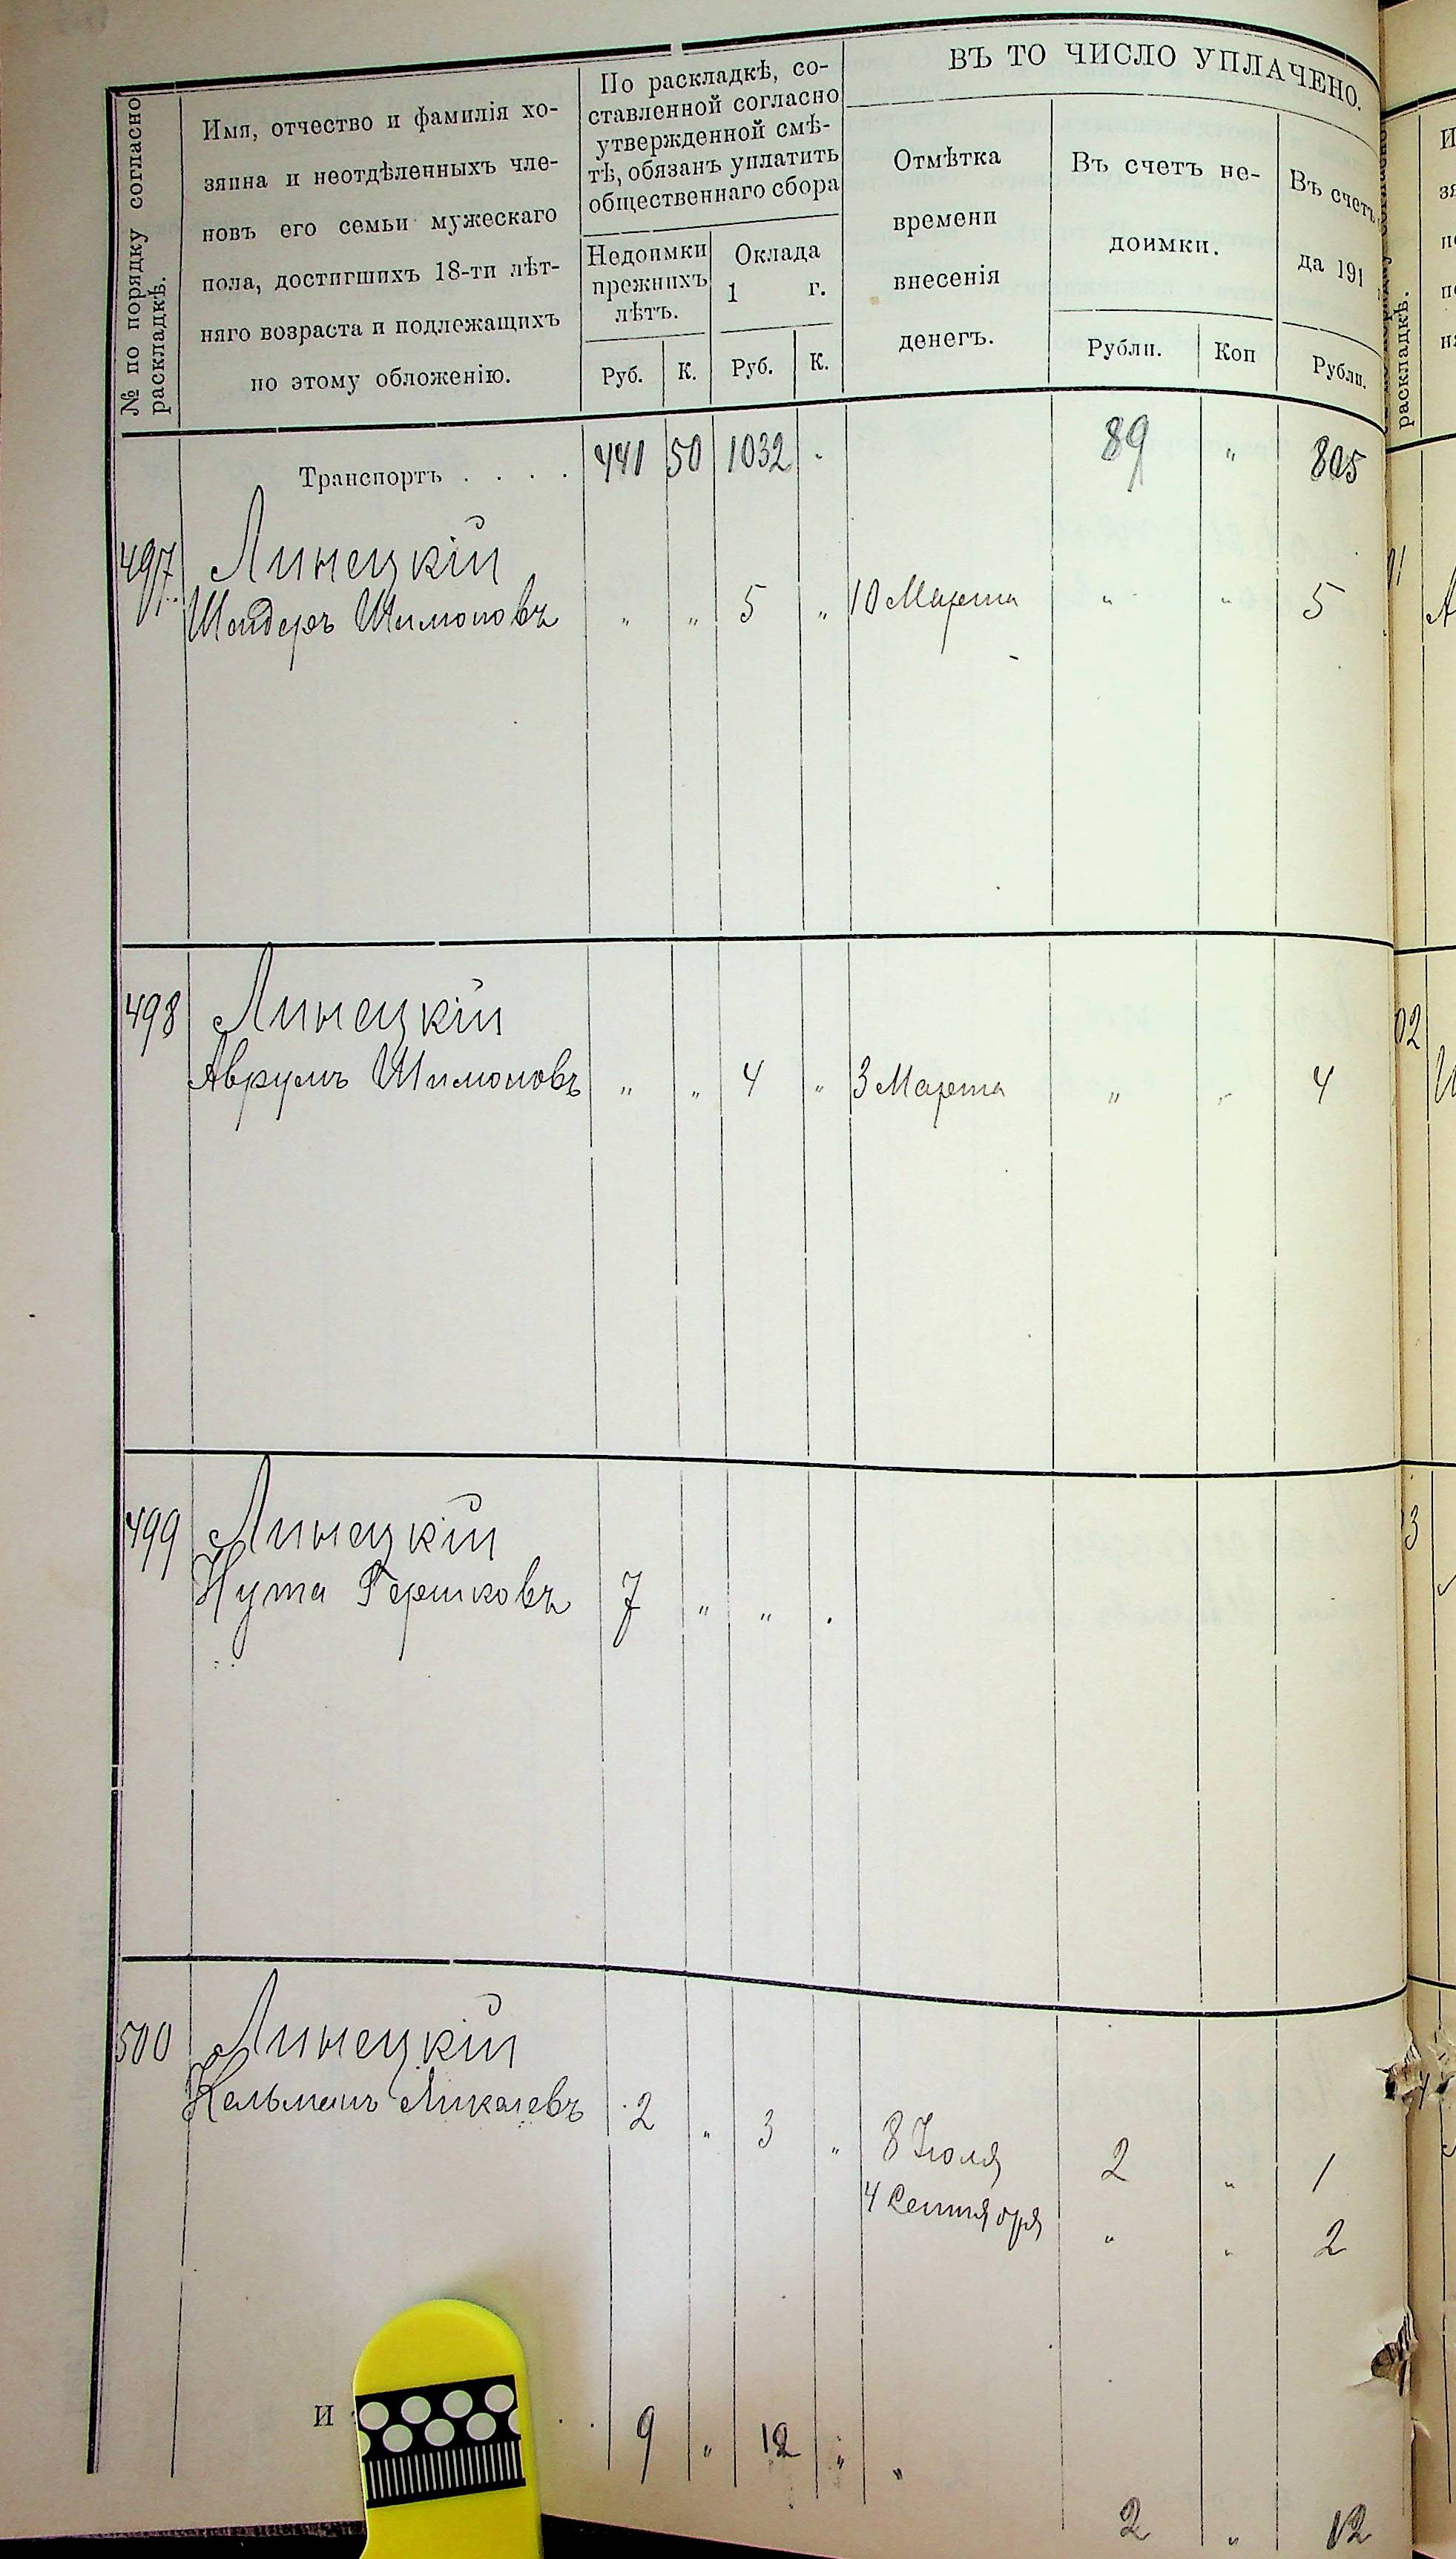 ВЪ ТО ЧИСЛО УПЛАЧЕНО.
№ по порядку согласно
раскладкѣ.
Имя, отчество и фамилія хо-
зяина и неотдѣленныхъ чле-
новъ его семьи мужескаго
пола, достигшихъ 18-ти лѣт-
няго возраста и подлежащихъ
по этому обложенію.
По раскладкѣ, со-
ставленной согласно
утвержденной смѣ-
тѣ, обязанъ уплатить
общественнаго сбора
Недоимки
прежнихъ
лѣтъ.
Оклада
1 г.
Руб. К. Руб. К.
Отмѣтка
времени
внесенія
денегъ.
Въ счетъ не-
доимки.
Рубли. Коп
Въ счетъ
да 191
Рубли.
Транспортъ . . . . 441 50 1032 . 89 " 805
497 Линецкій
Шендеръ Шимоновъ " " 5 " 10 Марта " " 5
498 Линецкій
Аврумъ Шимоновъ " " 4 " 3 Марта " " 4
499 Линецкій
Нута Гершковъ 7 " " .
500 Линецкій
Кельманъ 2 " 3 " 8 Іюля 2 " 1
4 Сентября " " 2
И . . 9 " 12 " "
2 " 12
раскладкѣ.